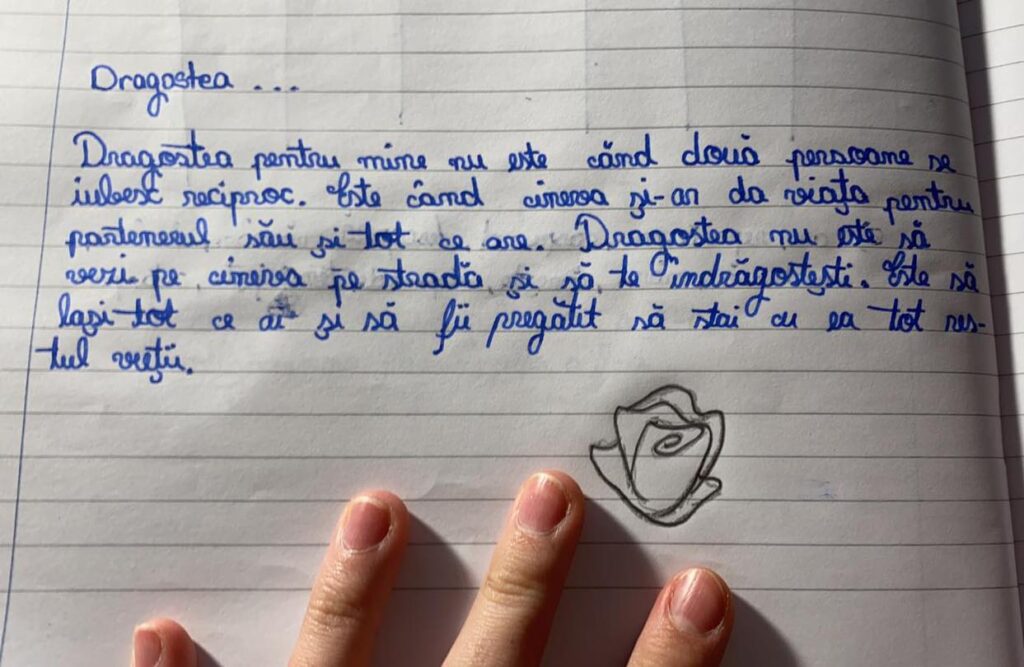 Dragostea ...
Dragostea pentru mine nu este când două persoane se
iubesc reciproc. Este când cineva și-ar da viața pentru
partenerul său și tot ce are. Dragostea nu este să
vezi pe cineva pe stradă și să te îndrăgostești. Este să
lași tot ce ai și să fii pregătit să stai cu ea tot res-
tul vieții.